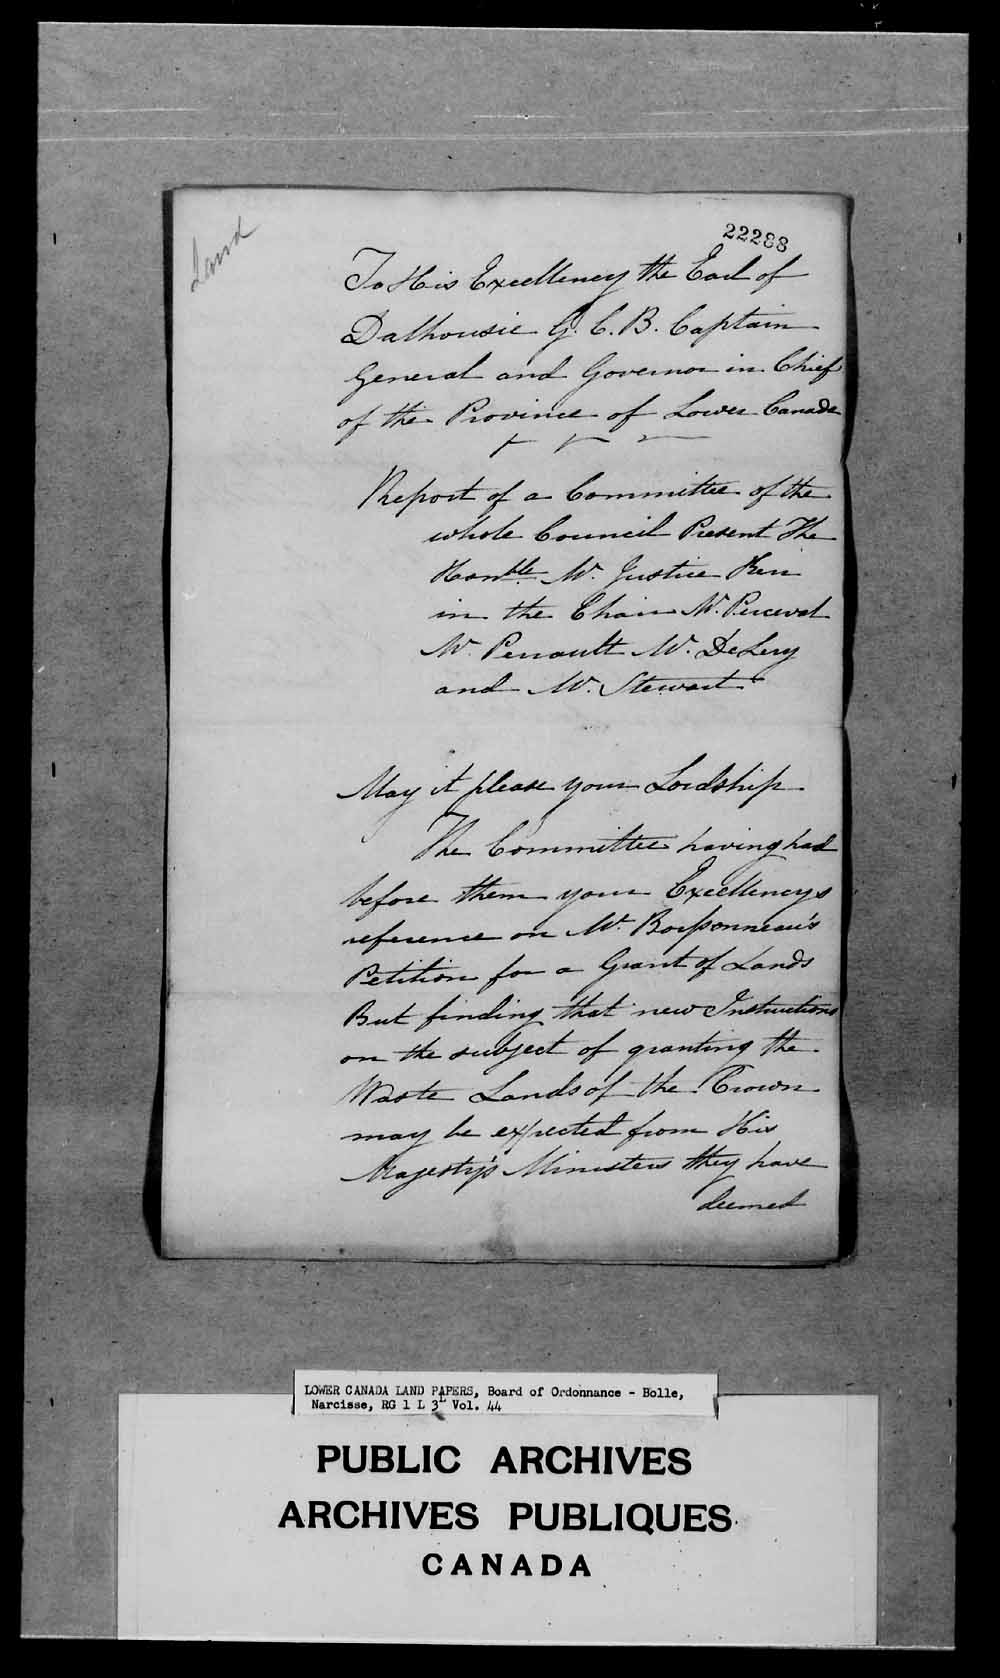 Land
22288
To His Excellency the Earl of
Dalhousie G. C. B. Captain
General and Governor in Chief
of the Province of Lower Canada
Report of a Committee of the
whole Council Present The
Honble Mr. Justice Kerr
in the Chair Mr. Perceval
Mr. Perrault Mr. DeLery
and Mr. Stewart
May it please your Lordship
The Committee having had
before them your Excellencys
reference on Mr. Boissonneau's
Petition for a Grant of Lands
But finding that new Instructions
on the subject of granting the
Waste Lands of the Crown
may be expected from His
Majesty's Ministers they have
deemed
LOWER CANADA LAND PAPERS, Board of Ordonnance - Bolle,
Narcisse, RG 1 L 3L Vol. 44
PUBLIC ARCHIVES
ARCHIVES PUBLIQUES
CANADA